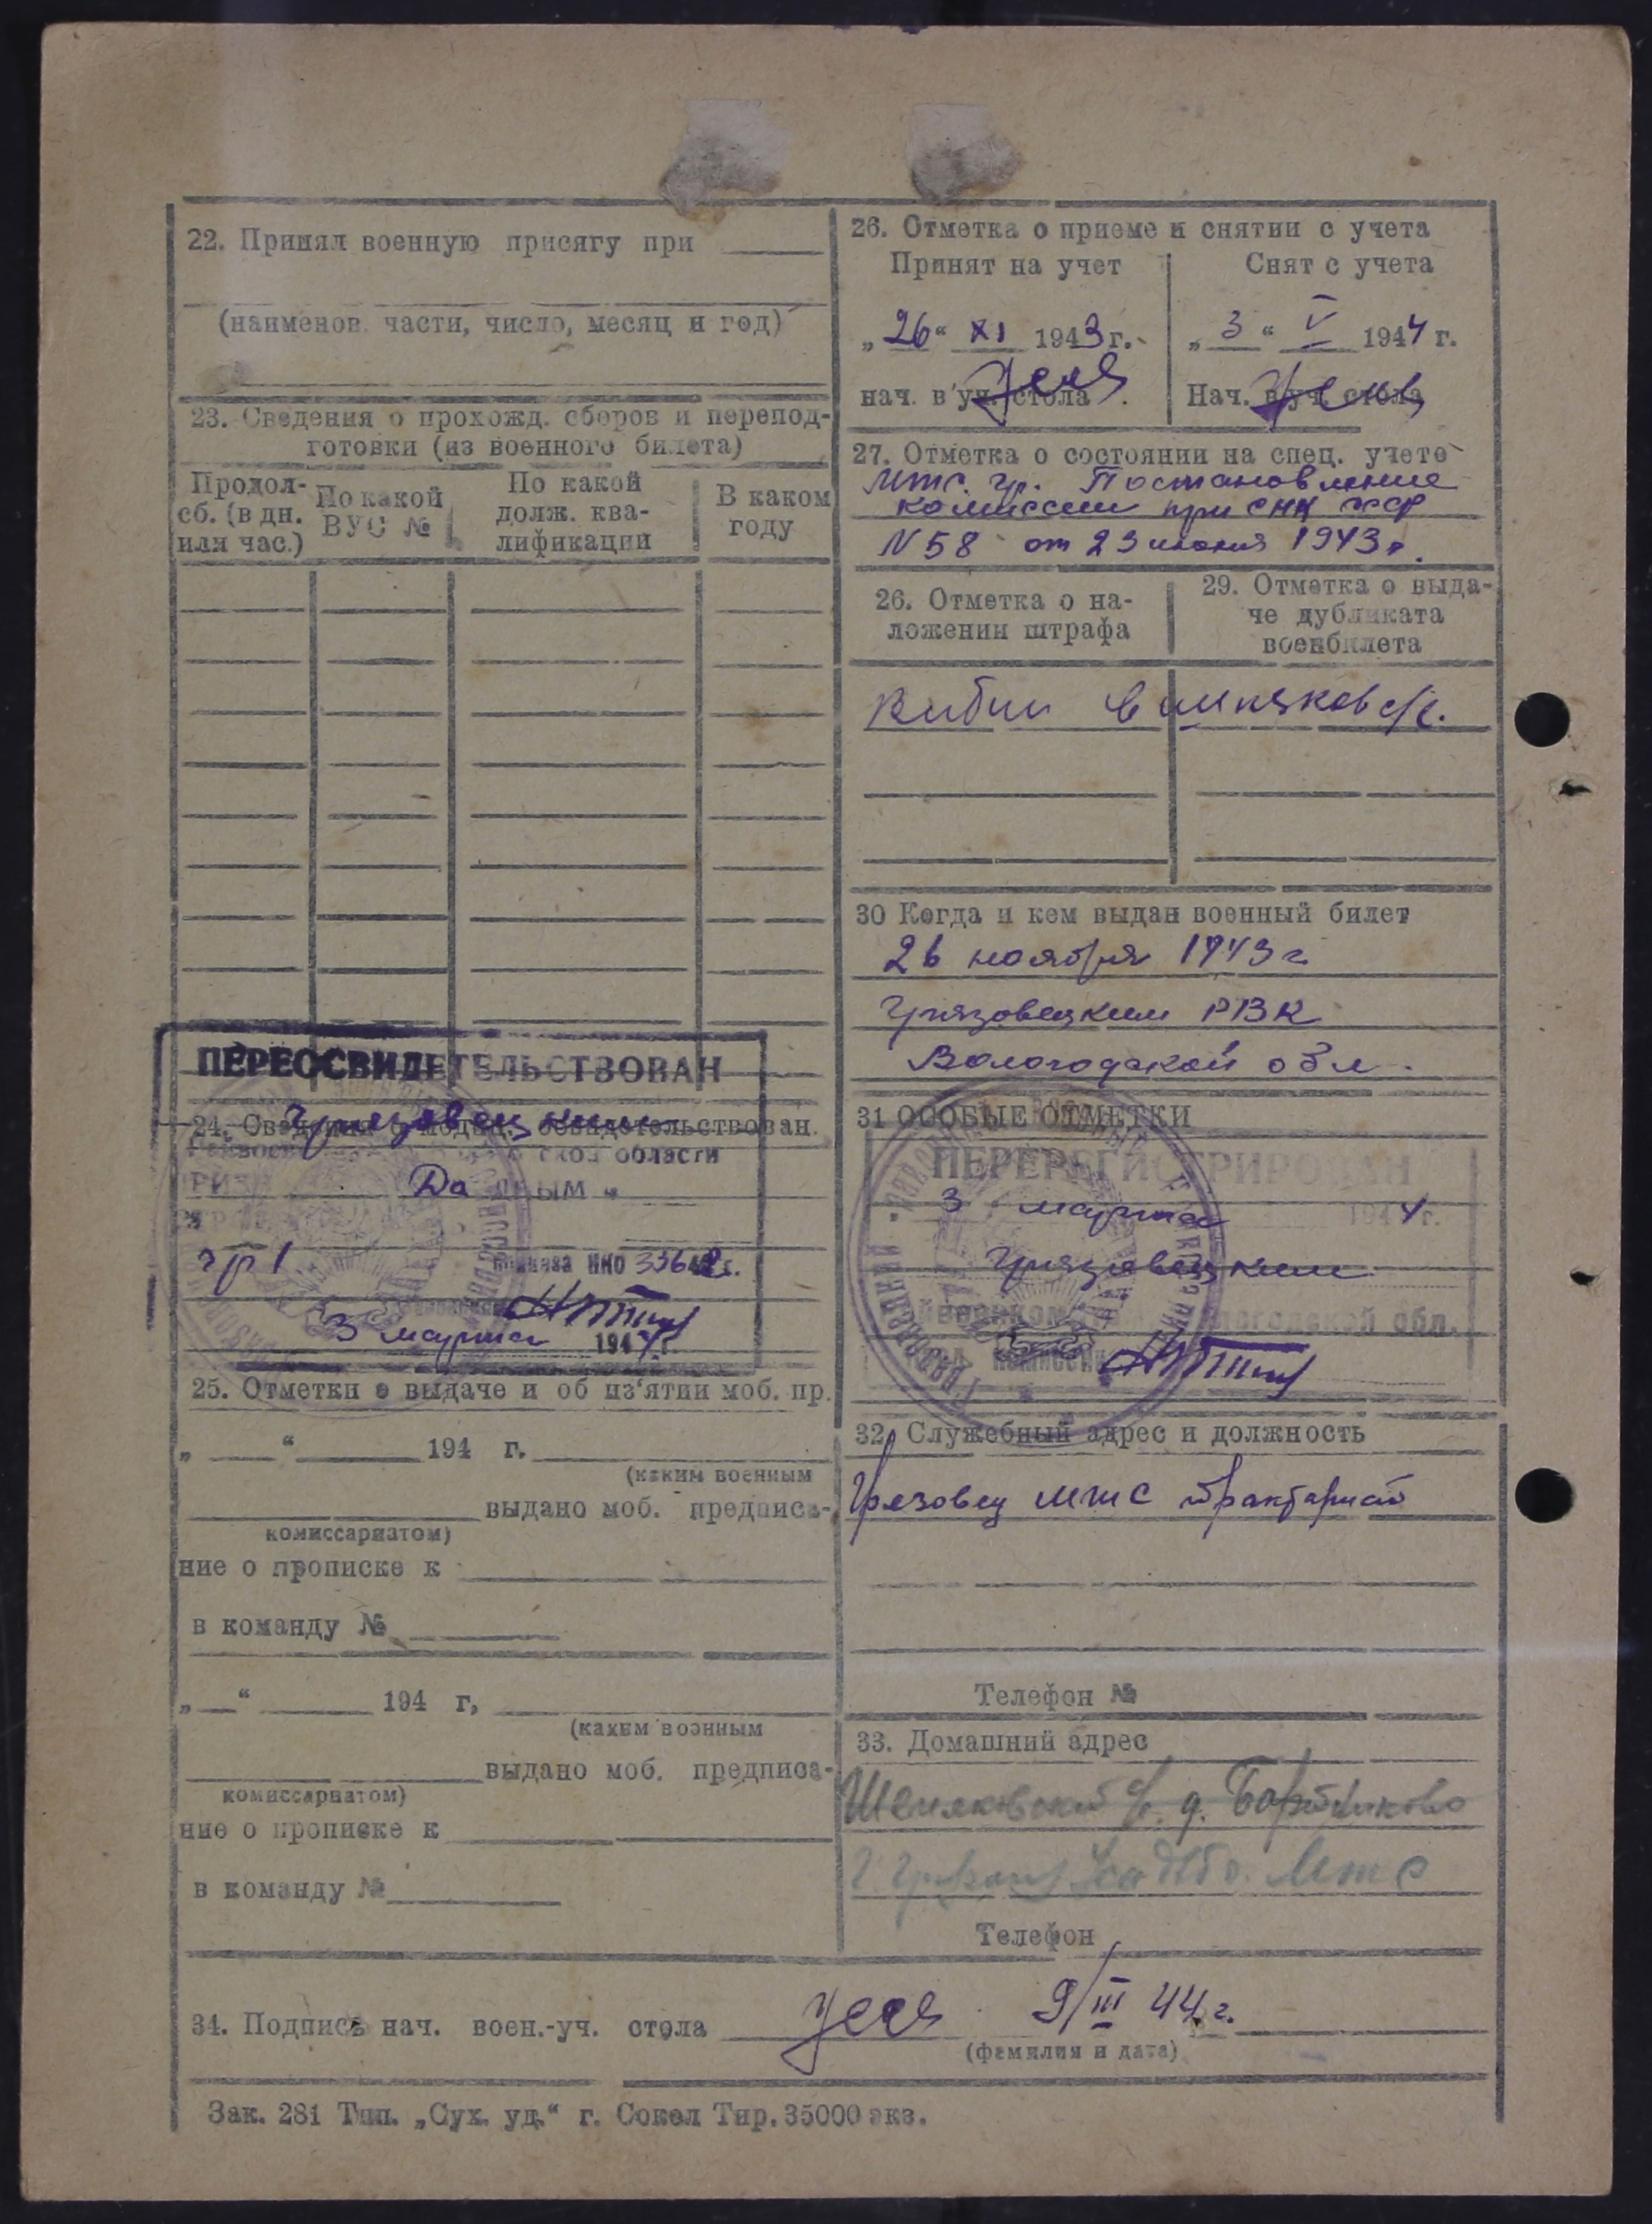 22. Принял военную присягу при
(наименов. части, число, месяц и год)
23. Сведения о прохожд. сборов и перепод-
готовки (из военного билета)
Продол-
сб. (в дн.
или час.)
По какой
ВУС №
По какой
долж. ква-
лификации
В каком
году
ПЕРЕОСВИДЕТЕЛЬСТВОВАН
Грязовецким
24. Сведения о медиц. освидетельствован.
ской области
Да
гр I
приказа НКО 336
3 марта 1944 г.
25. Отметки о выдаче и об из'ятии моб. пр.
„ “ 194 г.
(каким военным
выдано моб. предписа-
комиссариатом)
ние о прописке к
в команду №
„ “ 194 г,
(каким военным
выдано моб. предписа-
комиссариатом)
ние о прописке к
в команду №
26. Отметка о приеме и снятии с учета
Принят на учет
Снят с учета
„26“ XI 1943 г.
„3“ V 1944 г.
нач. в уч. стола
Нач. в уч. стола
27. Отметка о состоянии на спец. учете
Мтс. гр. Постановление
комиссии при СНК СССР
N 58 от 23 июня 1943 г.
26. Отметка о на-
ложении штрафа
29. Отметка о выда-
че дубликата
военбилета
с/с.
30 Когда и кем выдан военный билет
26 ноября 1943 г
Грязовецким РВК
Вологодской обл.
31 ОСОБЫЕ ОТМЕТКИ
ПЕРЕРЕГИСТРИРОВАН
3 марта 1944 г.
Грязовецким
райвоенкоматом Вологодской обл.
32. Служебный адрес и должность
Грязовец МТС
Телефон №
33. Домашний адрес
с/с. д.
МТС
Телефон
34. Подпись нач. воен.-уч. стола 9/III 44 г.
(фамилия и дата)
Зак. 281 Тип. „Сух. уд.“ г. Сокол Тир. 35000 экз.